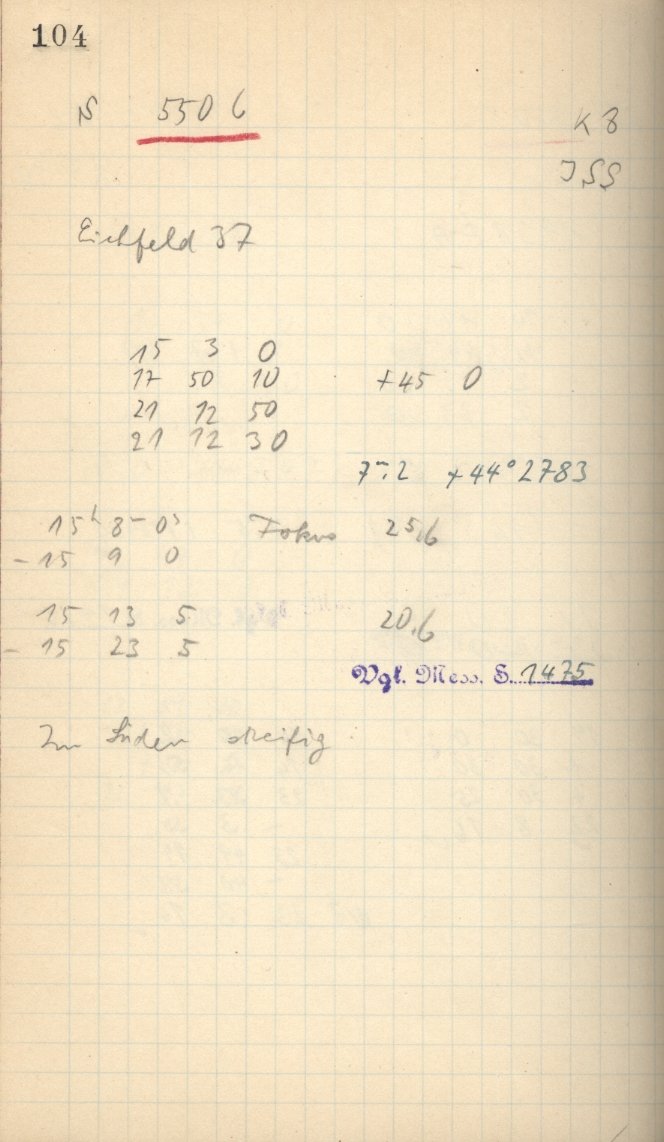 104
S 5506
K 8
ISS
Eichfeld 37
15 3 0
17 50 10 +45 0
21 12 50
21 12 30
7m.2 +44° 2783
15h 8m 0s Fokus 25,6
- 15 9 0
15 13 5 20,6
- 15 23 5
Vgl. Mess. S. 1475
Im Süden streifig